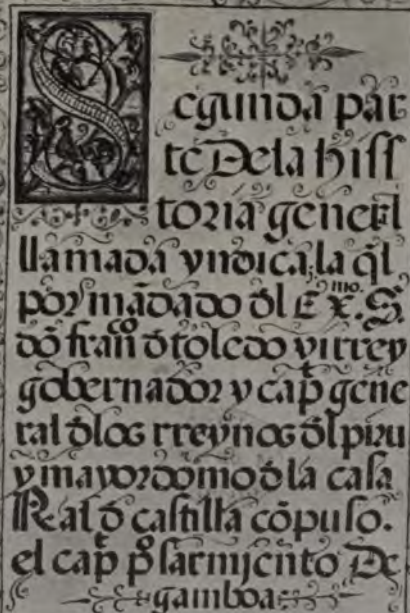 Segunda par
te De la hiss
toria generl
llamada yndica, la q̃l
por mãdado dl̃ Ex.mo S.
dõ franco d toledo virrey
gobernador y capt gene
ral dlos rreynos dl piru
y mayordomo d la casa
Real d castilla cõpuso.
el capt po sarmiento De
gamboa